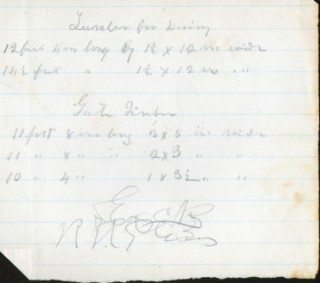 Lumber for
12 feet 4 in long by 1½ x 12 in wide
14½ feet " 1½ x 12 in "
Gate Timber
11 feet 8 in long 3 x 5 in wide
11 " 8 " " 2 x 3 " "
10 " 4 " 1 x 3½ " "